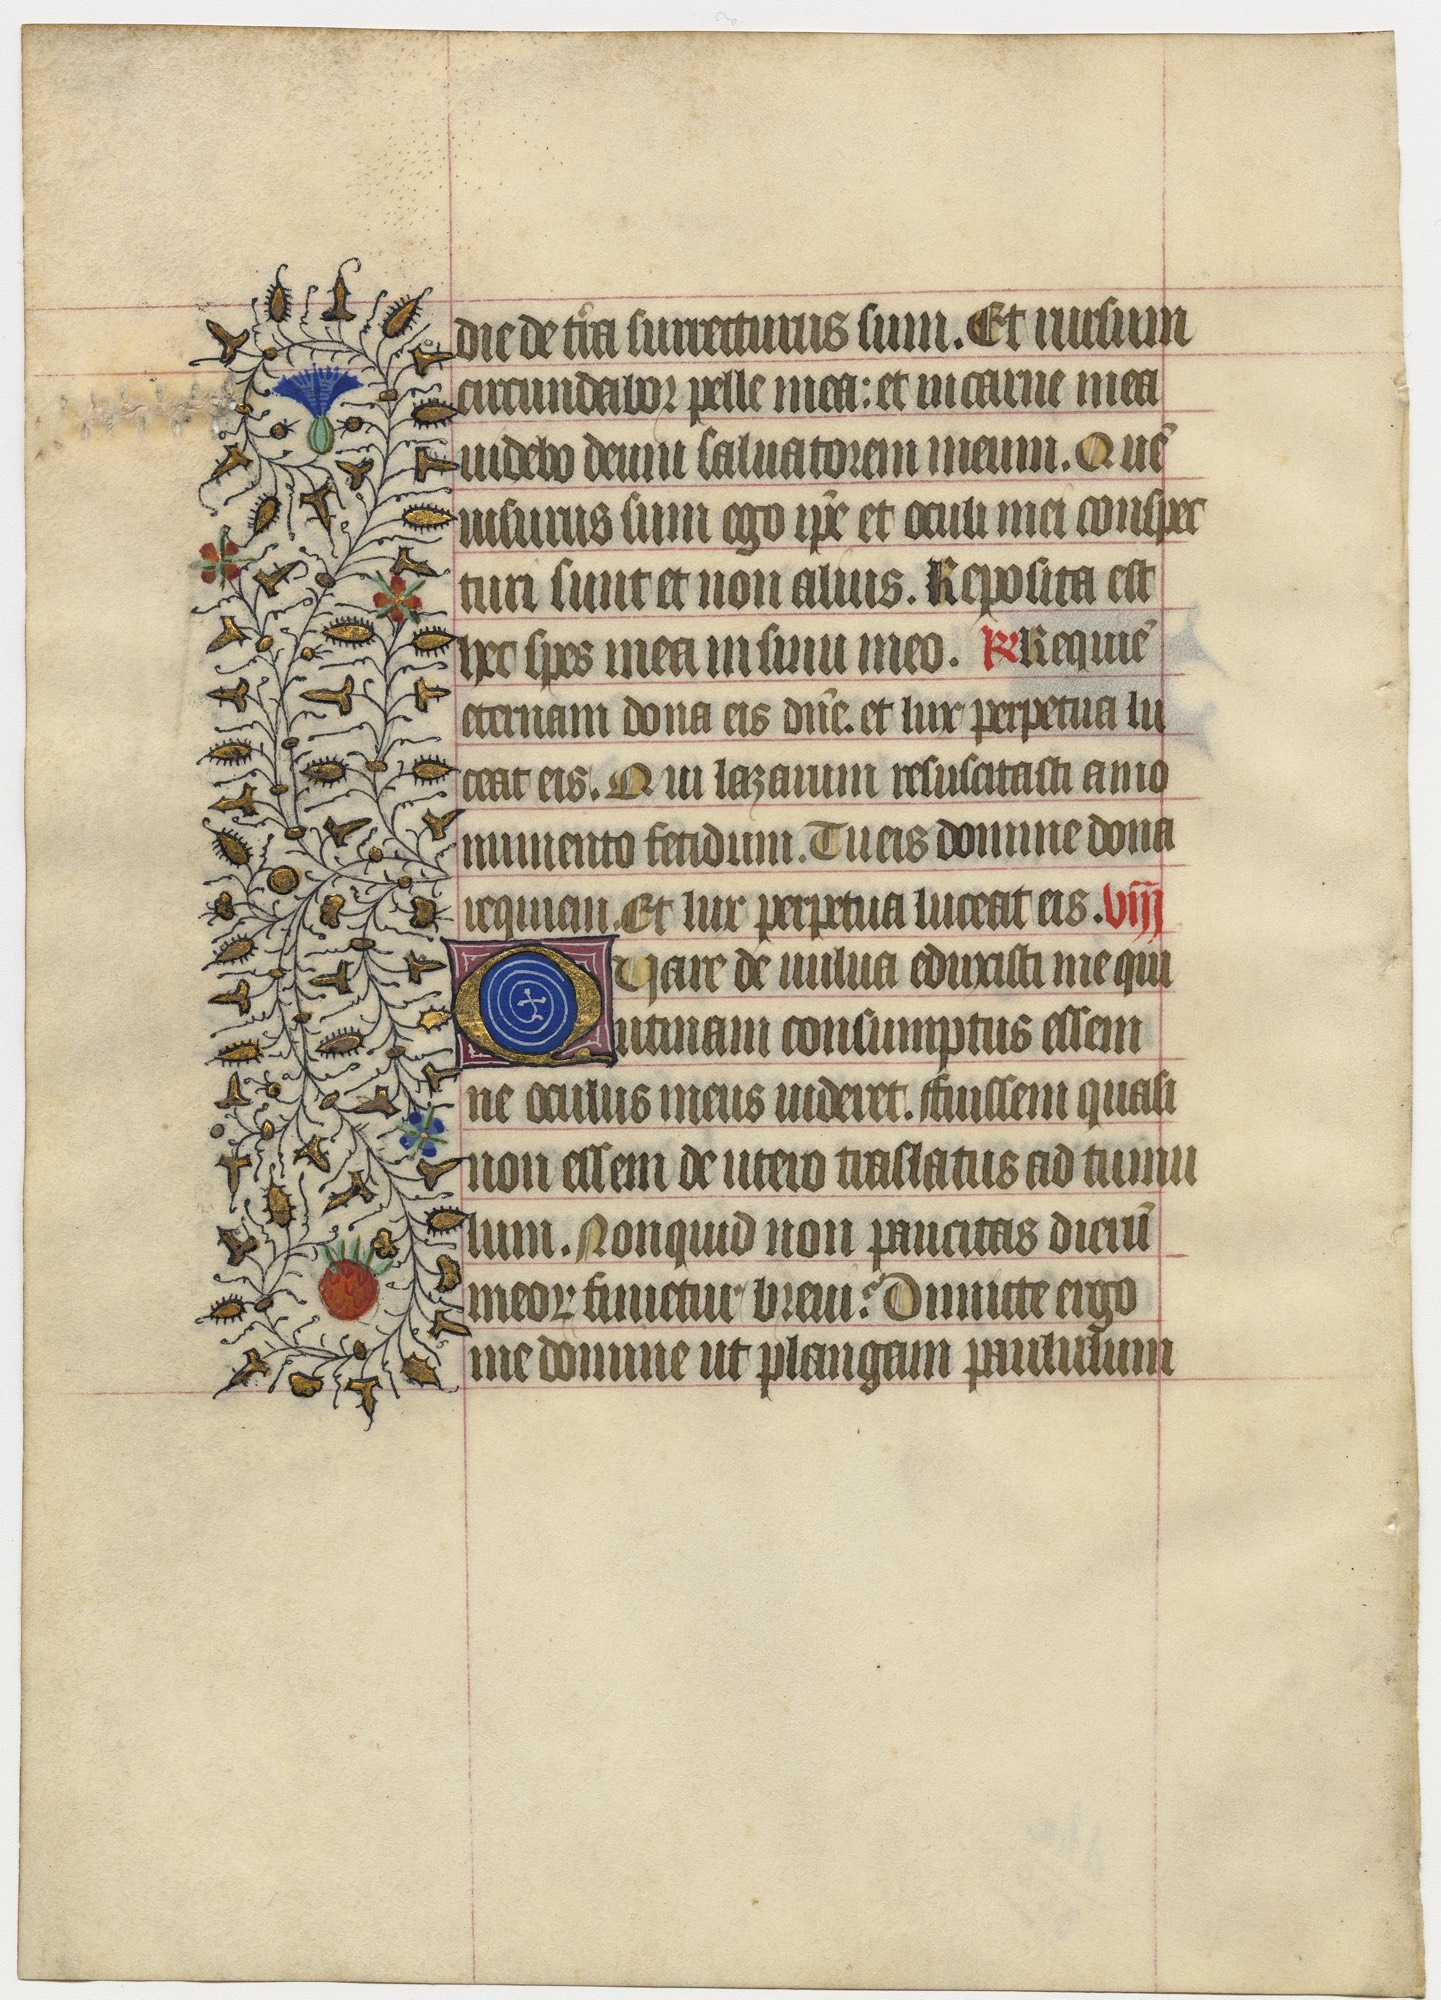 die de tr̄a surrecturus sum. Et rursum
circundabor pelle mea: et in carne mea
uidebo deum saluatorem meum. Que᷈
uisurus sum ego ip̄e et oculi mei conspec
turi sunt et non alius. Reposita est
hec spes mea in sinu meo. ℟ Requie᷈
eternam dona eis dn̄e. et lux perpetua lu
ceat eis. Qui lazarum resuscitasti a mo
numento fetidum. Tu eis domine dona
requiem. Et lux perpetua luceat eis. viij
Quare de uulua eduxisti me qui
utinam consumptus essem
ne oculus meus uideret. Fuissem quasi
non essem de utero traslatus ad tumu
lum. Nonquid non paucitas dierū
meoꝝ finietur breui? Dimitte ergo
me domine ut plangam paululum